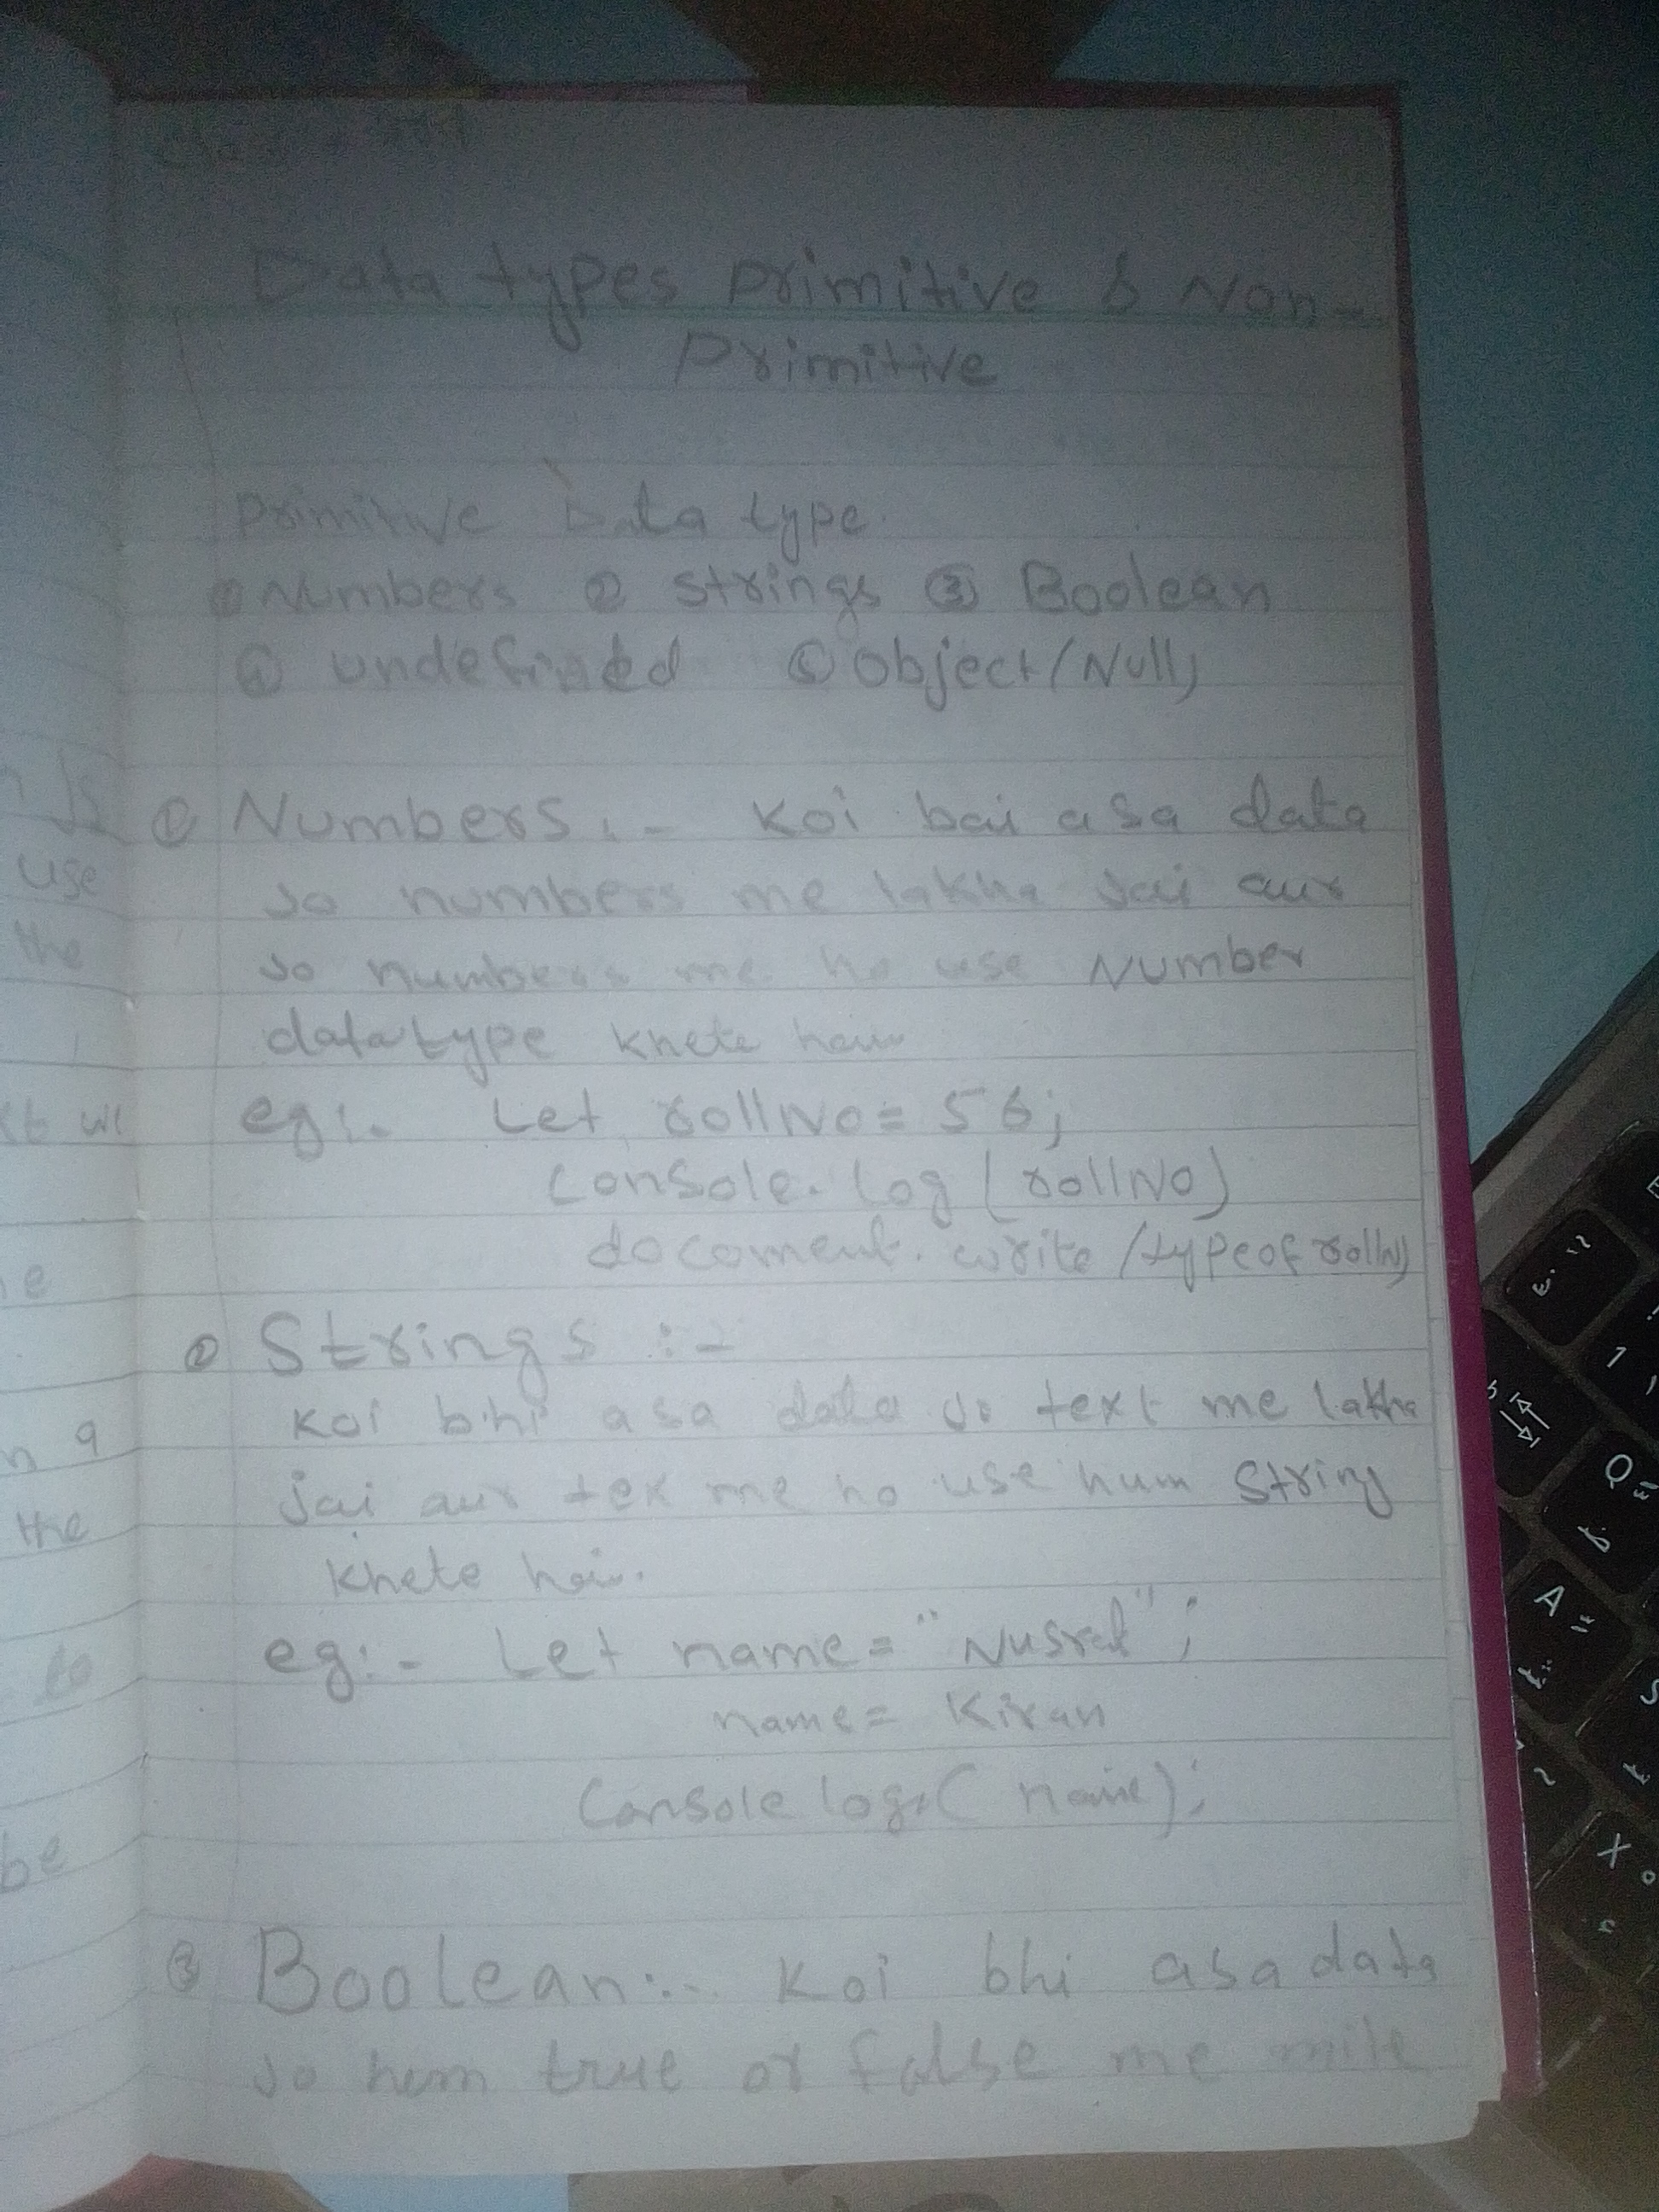 Data types Primitive & Non-
Primitive
Primitive Data type.
① Numbers ② Strings ③ Boolean
④ undefinded ⑤ Object/(Null)
① Numbers :- Koi bai asa data
jo numbers me lakha jai aur
jo numbers me ho use Number
datatype khete hai
eg:- Let rollNo = 56;
Console.log (rollNo)
document.write (typeof rollNo)
② Strings :-
Koi bihi asa data jo text me lakha
jai aur tex me ho use hum String
khete hai.
eg:- Let name = "Nusrat";
name = Kiran
Console log.( name);
③ Boolean:- Koi bhi asa data
jo hum true or false me mile
n JS
use
the
wi
e
n a
the
to
be